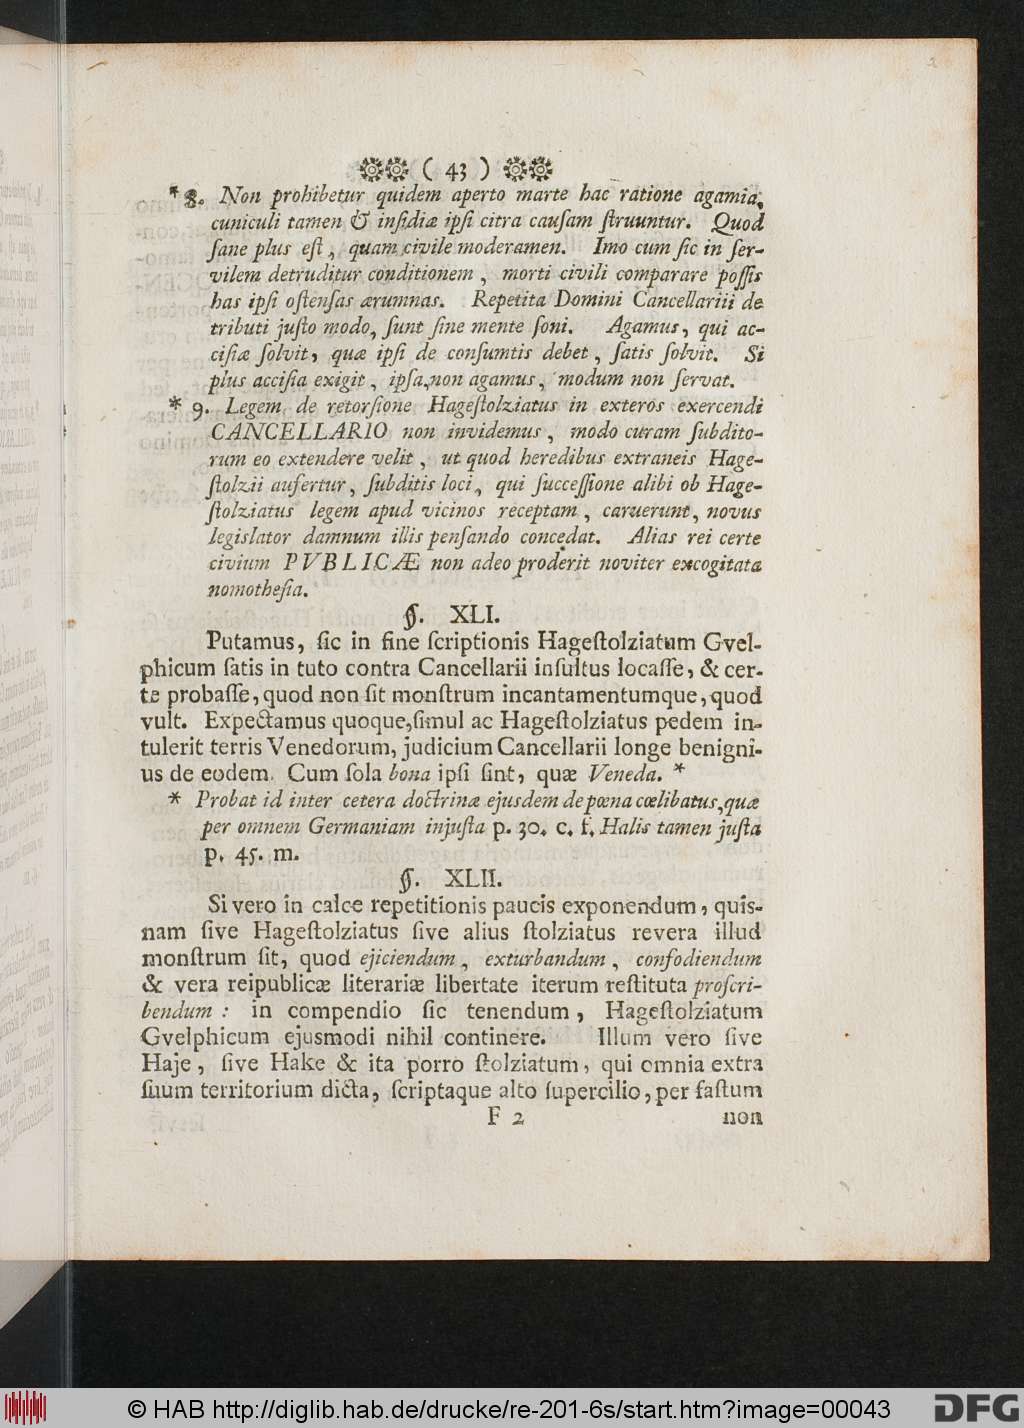 ( 43 )
* 8. Non prohibetur quidem aperto marte hac ratione agamia,
cuniculi tamen & inſidiæ ipſi citra cauſam ſtruuntur. Quod
ſane plus eſt, quam civile moderamen. Imo cum ſic in ſer-
vilem detruditur conditionem, morti civili comparare poſſis
has ipſi oſtenſas ærumnas. Repetita Domini Cancellariii de
tributi juſto modo, ſunt ſine mente ſoni. Agamus, qui ac-
ciſiæ ſolvit, quæ ipſi de conſumtis debet, ſatis ſolvit. Si
plus acciſia exigit, ipſa, non agamus, modum non ſervat.
* 9. Legem de retorſione Hageſtolziatus in exteros exercendi
CANCELLARIO non invidemus, modo curam ſubdito-
rum eo extendere velit, ut quod heredibus extraneis Hage-
ſtolzii aufertur, ſubditis loci, qui ſucceſſione alibi ob Hage-
ſtolziatus legem apud vicinos receptam, caruerunt, novus
legislator damnum illis penſando concedat. Alias rei certe
civium PVBLICÆ non adeo proderit noviter excogitata
nomotheſia.
§. XLI.
Putamus, ſic in fine ſcriptionis Hageſtolziatum Gvel-
phicum ſatis in tuto contra Cancellarii inſultus locaſſe, & cer-
te probaſſe, quod non ſit monſtrum incantamentumque, quod
vult. Expectamus quoque, ſimul ac Hageſtolziatus pedem in-
tulerit terris Venedorum, judicium Cancellarii longe benigni-
us de eodem. Cum ſola bona ipſi ſint, quæ Veneda. *
* Probat id inter cetera doctrinæ ejusdem de pœna cœlibatus, quæ
per omnem Germaniam injuſta p. 30. c. f. Halis tamen juſta
p. 45. m.
§. XLII.
Si vero in calce repetitionis paucis exponendum, quis-
nam ſive Hageſtolziatus ſive alius ſtolziatus revera illud
monſtrum ſit, quod ejiciendum, exturbandum, confodiendum
& vera reipublicæ literariæ libertate iterum reſtituta proſcri-
bendum : in compendio ſic tenendum, Hageſtolziatum
Gvelphicum ejusmodi nihil continere. Illum vero ſive
Haje, ſive Hake & ita porro ſtolziatum, qui omnia extra
ſuum territorium dicta, ſcriptaque alto ſupercilio, per faſtum
F 2 non
© HAB http://diglib.hab.de/drucke/re-201-6s/start.htm?image=00043
DFG